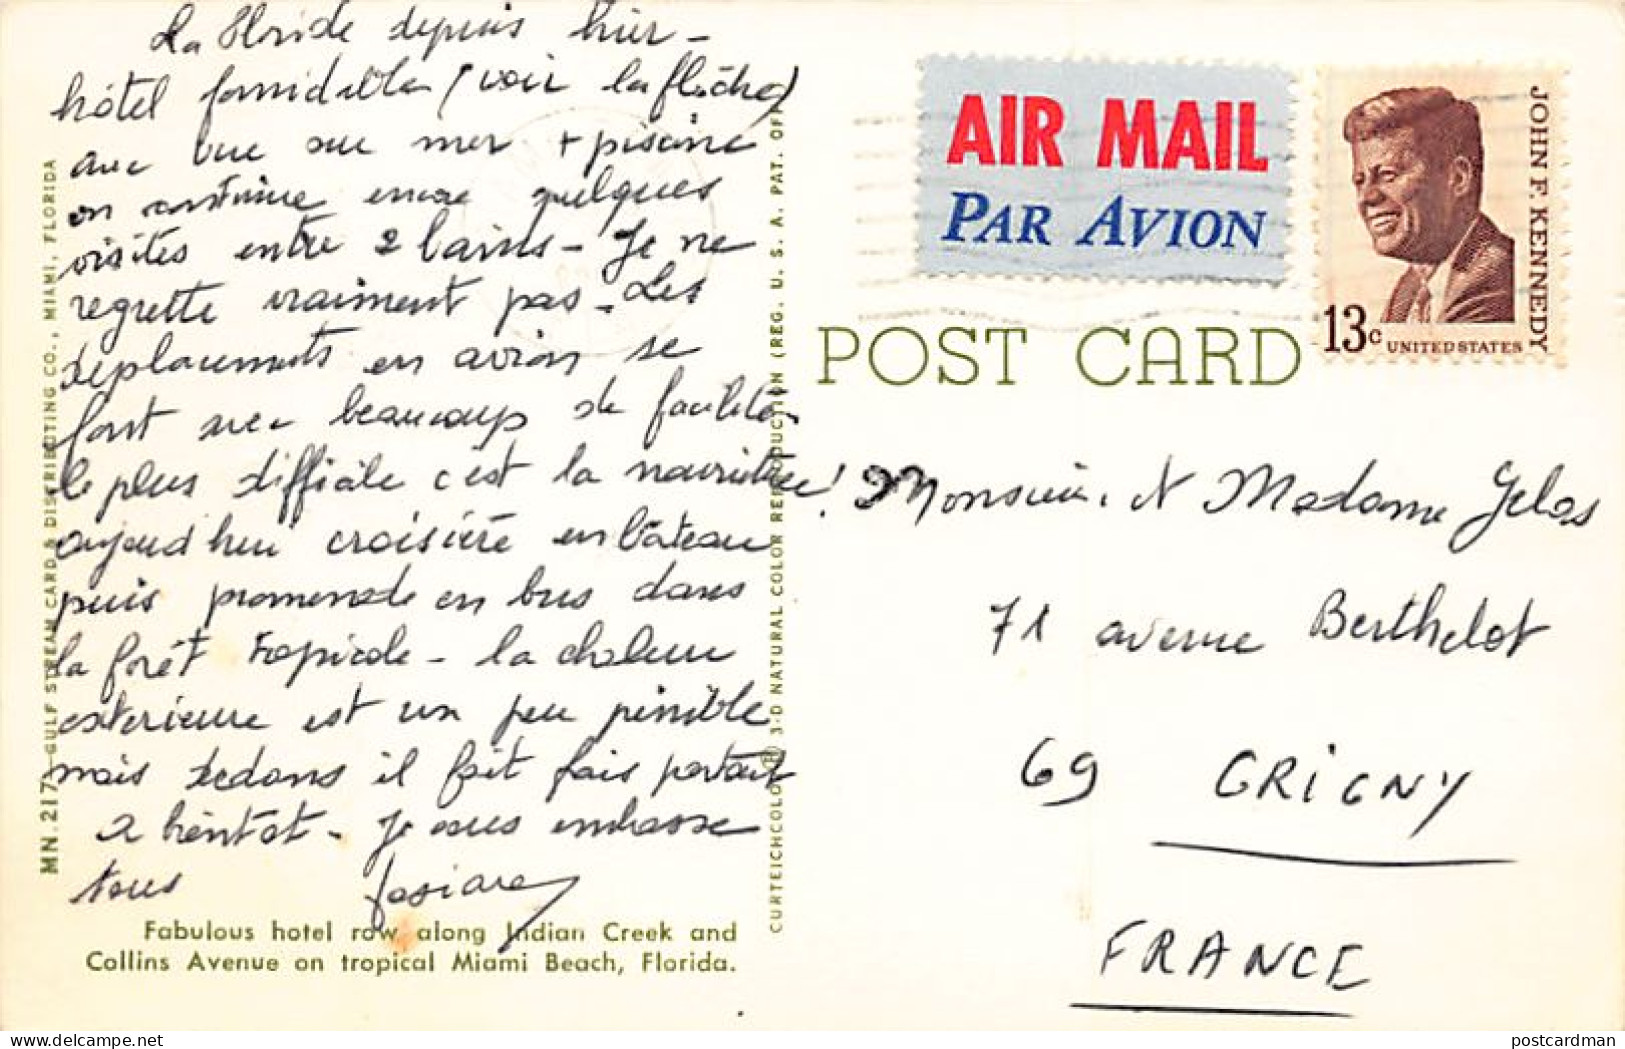 La Floride depuis hier -
hôtel formidable (voir la flèche)
avec vue sur mer + piscine
on continue encore quelques
visites entre 2 bains - Je ne
regrette vraiment pas - Les
déplacements en avion se
font avec beaucoup de facilité -
le plus difficile c'est la nourriture !
aujourd'hui croisière en bâteau
puis promenade en bus dans
la forêt tropicale - la chaleur
exterieure est un peu pénible
mais dedans il fait frais partout
A bientôt - Je vous embrasse
tous
Fabulous hotel row along Indian Creek and
Collins Avenue on tropical Miami Beach, Florida.
MN.217-GULF STREAM CARD & DISTRIBUTING CO., MIAMI, FLORIDA
CURTEICHCOLOR® 3-D NATURAL COLOR REPRODUCTION (REG. U. S. A. PAT. OFF
AIR MAIL
PAR AVION
JOHN F. KENNEDY
13c UNITED STATES
POST CARD
Monsieur et Madame Gelas
71 avenue Berthelot
69 GRIGNY
FRANCE
postcardman